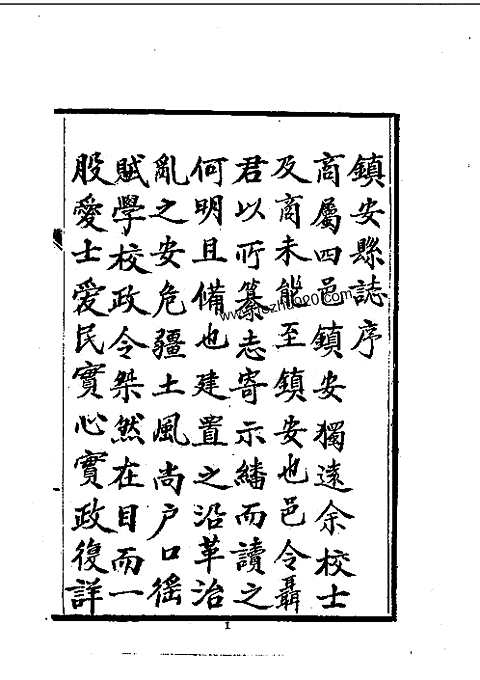 鎮安縣誌序
商屬四邑鎮安獨遠余校士
及商未能至鎮安也邑令聶
君以所纂志寄示繙而讀之
何明且備也建置之沿革治
亂之安危疆土風尚户口徭
賦學校政令桀然在目而一
股愛士愛民實心實政復詳
1